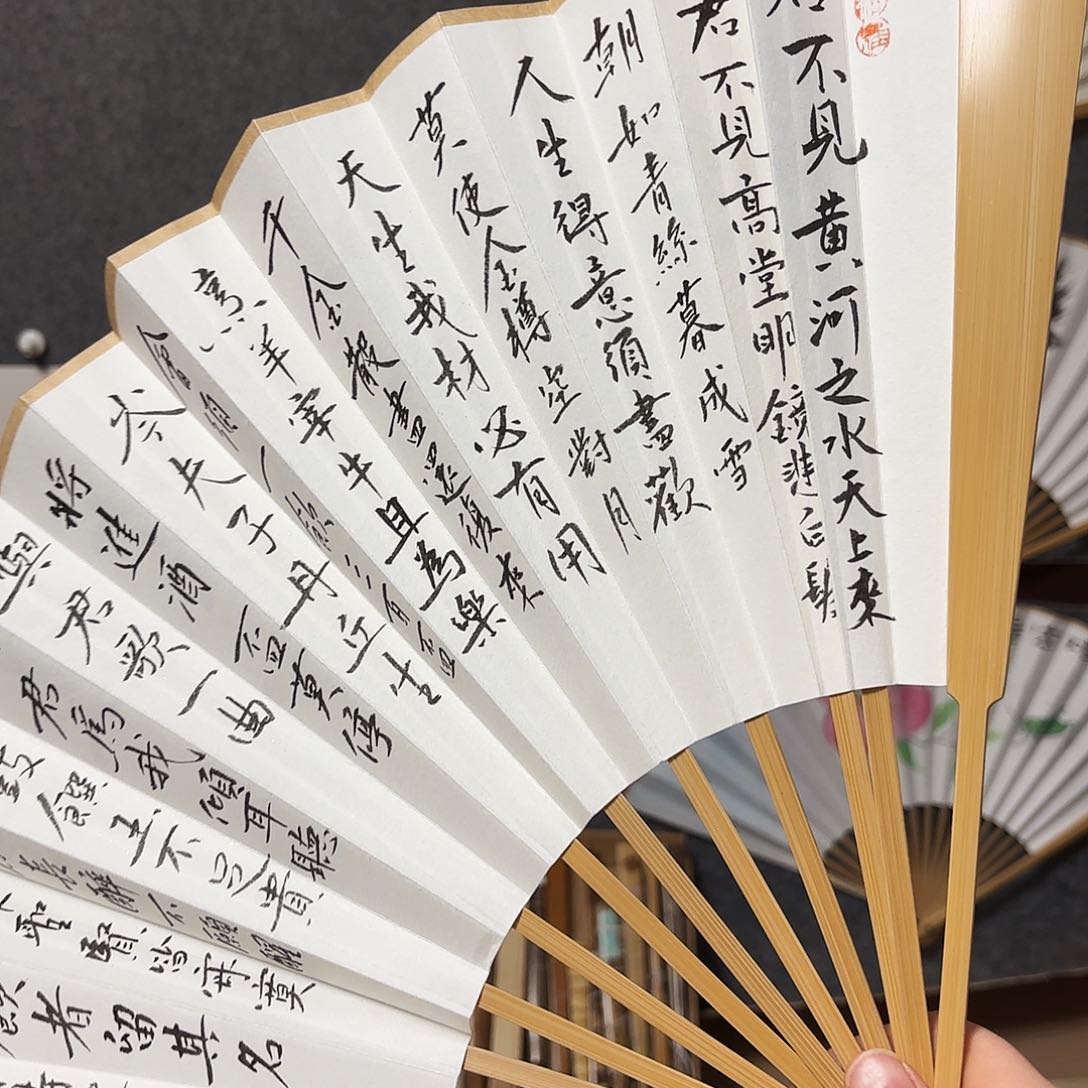 君不見黃河之水天上來
君不見高堂明鏡悲白髮
朝如青絲暮成雪
人生得意須盡歡
莫使金樽空對月
天生我材必有用
千金散盡還復來
烹羊宰牛且為樂
會須一飲三百盃
岑夫子丹丘生
將進酒盃莫停
與君歌一曲
君為我傾耳聽
鼓饌玉不足貴
不願醒
聖賢皆寂寞
飲者留其名